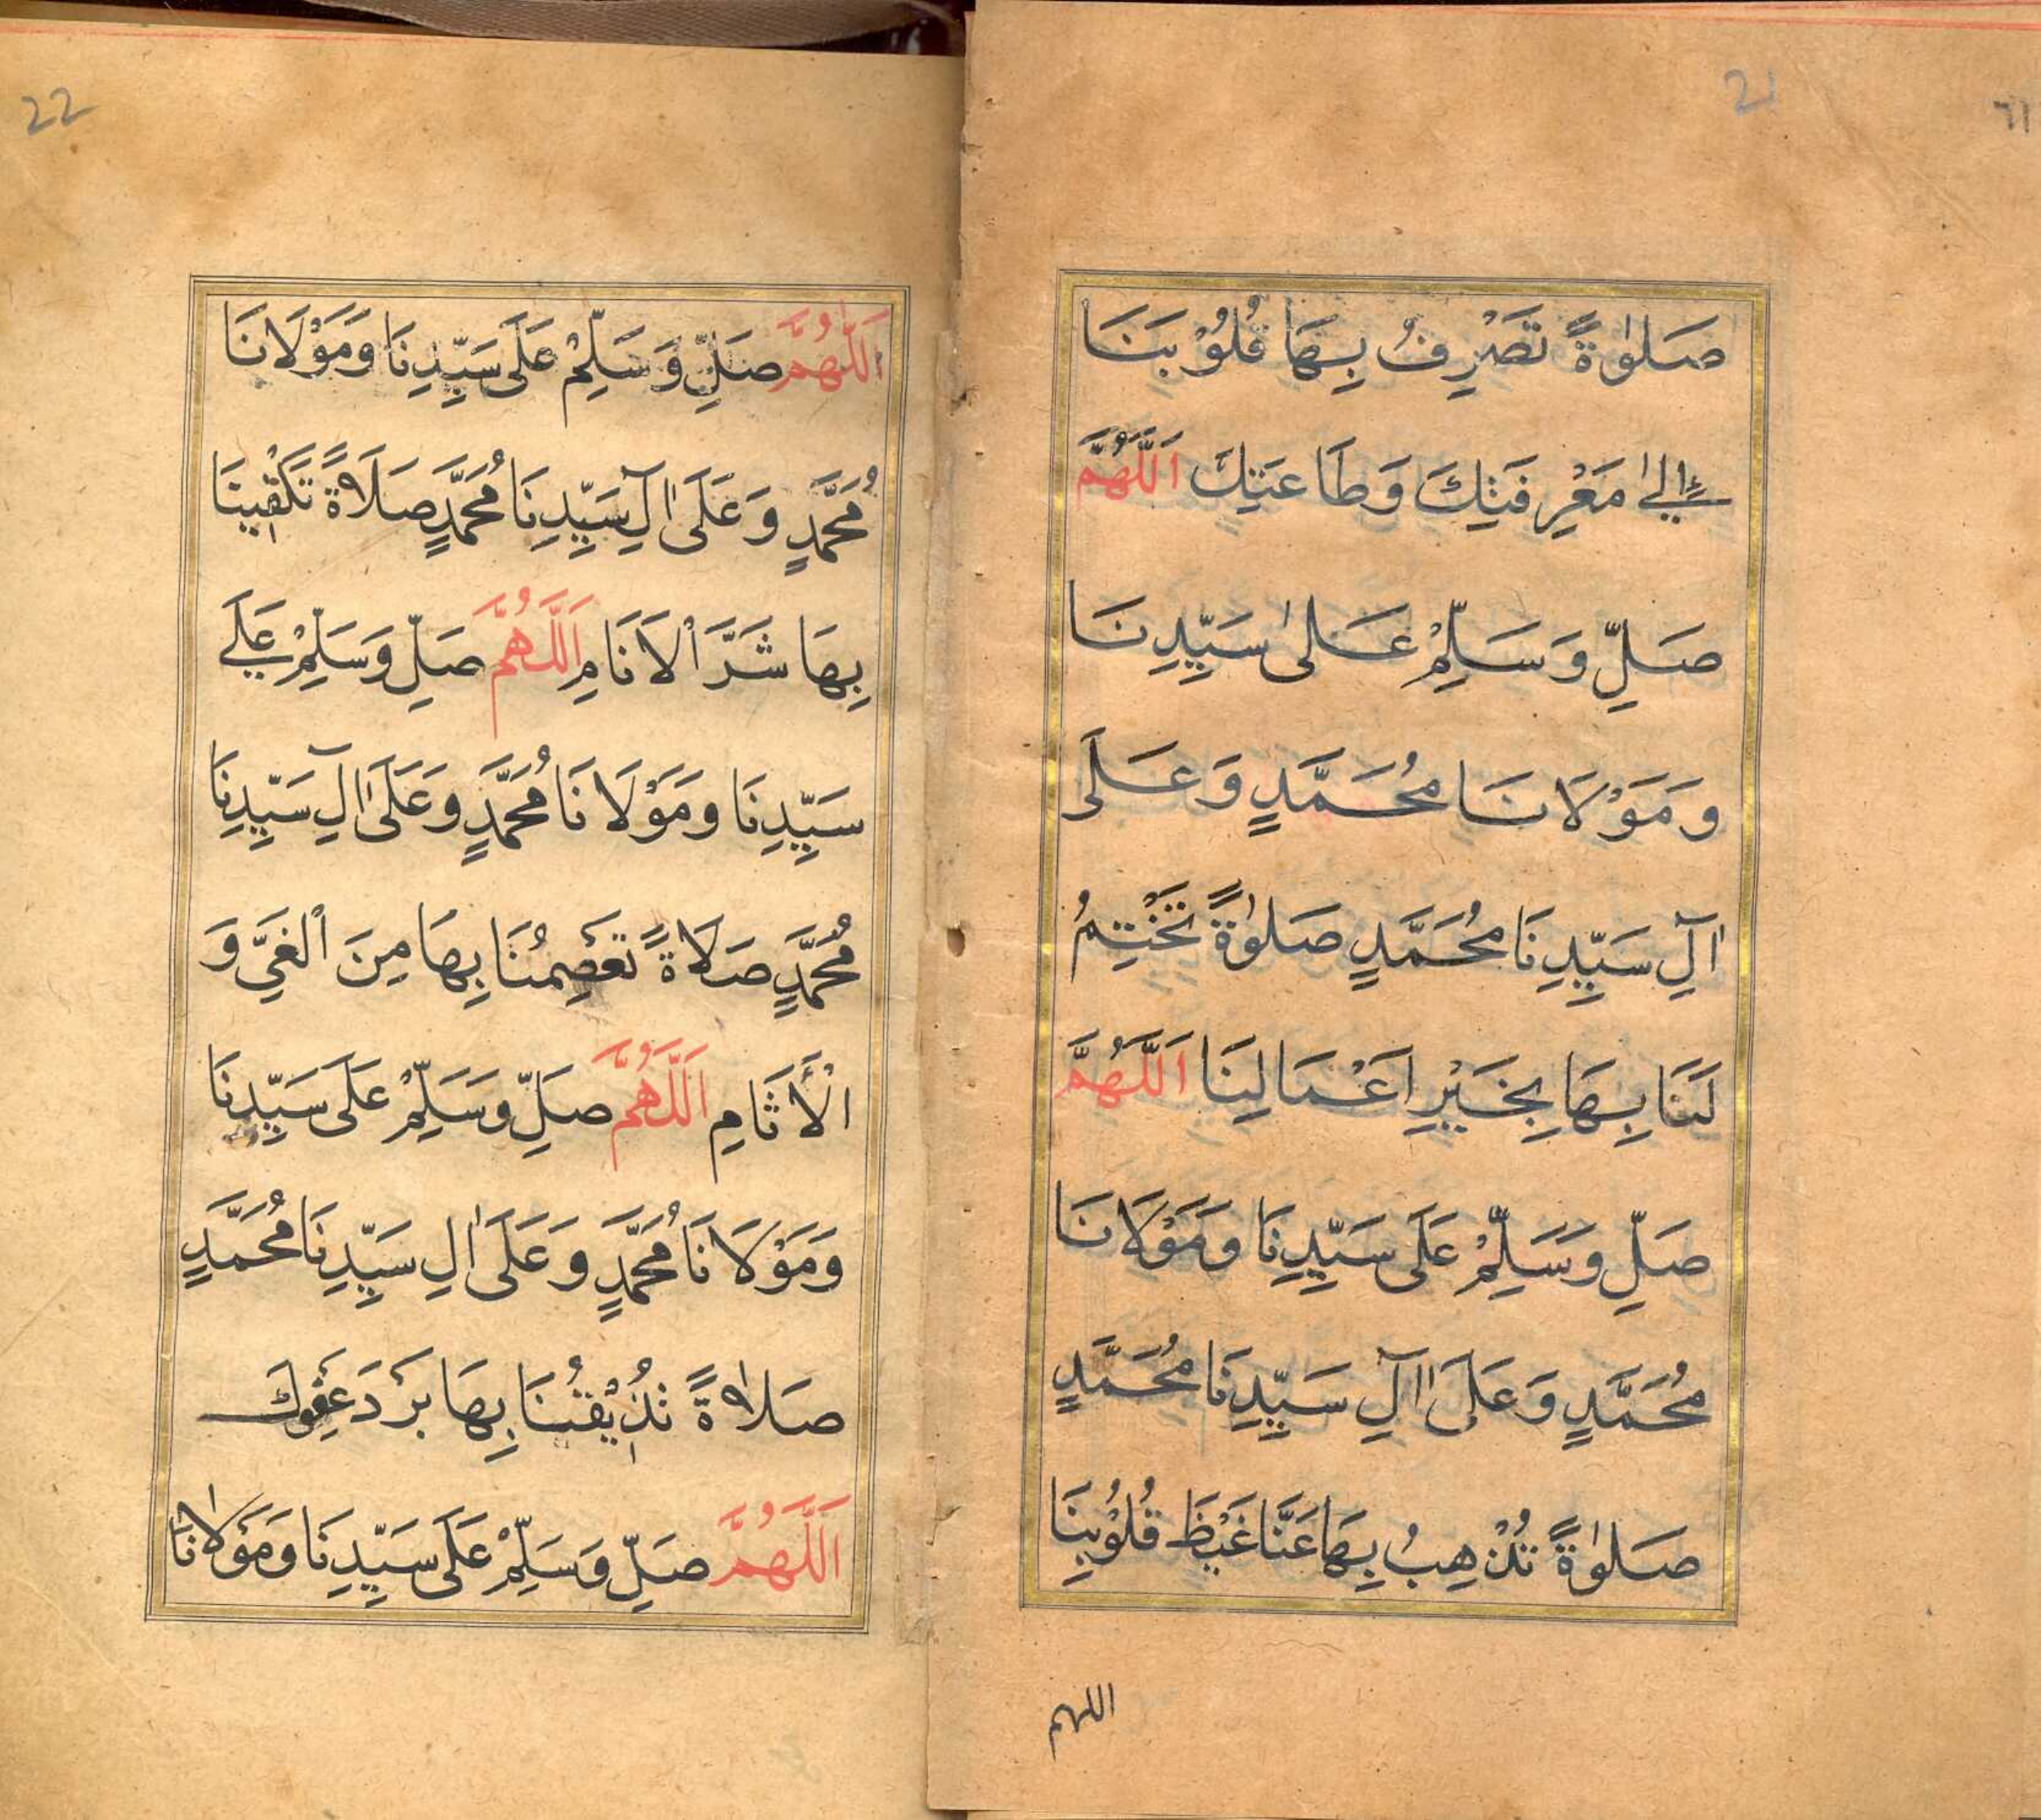 21
صَلوٰةً تَصْرِفُ بِهَا قُلُوْبَنَا
اِلىٰ مَعْرِفَتِكَ وَطَاعَتِكَ اَللَّهُمَّ
صَلِّ وَسَلِّمْ عَلىٰ سَيِّدِنَا
وَمَوْلَانَا مُحَمَّدٍ وَعَلَى
اٰلِ سَيِّدِنَا مُحَمَّدٍ صَلوٰةً تَخْتِمُ
لَنَا بِهَا بِخَيْرِ اَعْمَالِنَا اَللَّهُمَّ
صَلِّ وَسَلِّمْ عَلَى سَيِّدِنَا وَمَوْلَانَا
مُحَمَّدٍ وَعَلَى اٰلِ سَيِّدِنَا مُحَمَّدٍ
صَلوٰةً تُذْهِبُ بِهَا عَنَّا غَيْظَ قُلُوْبِنَا
اللهم
22
اَللّٰهُمَّ صَلِّ وَسَلِّمْ عَلَى سَيِّدِنَا وَمَوْلَانَا
مُحَمَّدٍ وَعَلَى اٰلِ سَيِّدِنَا مُحَمَّدٍ صَلَاةً تَكْفِينَا
بِهَا شَرَّ اْلاَنَامِ اَللَّهُمَّ صَلِّ وَسَلِّمْ عَلَے
سَيِّدِنَا وَمَوْلَانَا مُحَمَّدٍ وَعَلَى اٰلِ سَيِّدِنَا
مُحَمَّدٍ صَلَاةً تَعْصِمُنَا بِهَا مِنَ اْلغَيِّ وَ
الْأَثَامِ اَللَّهُمَّ صَلِّ وَسَلِّمْ عَلَى سَيِّدِنَا
وَمَوْلَانَا مُحَمَّدٍ وَعَلَى اٰلِ سَيِّدِنَا مُحَمَّدٍ
صَلَاةً تُذِيْقُنَا بِهَا بَرْدَ عَفْوِكَ
اَللَّهُمَّ صَلِّ وَسَلِّمْ عَلَى سَيِّدِنَا وَمَوْلَانَا